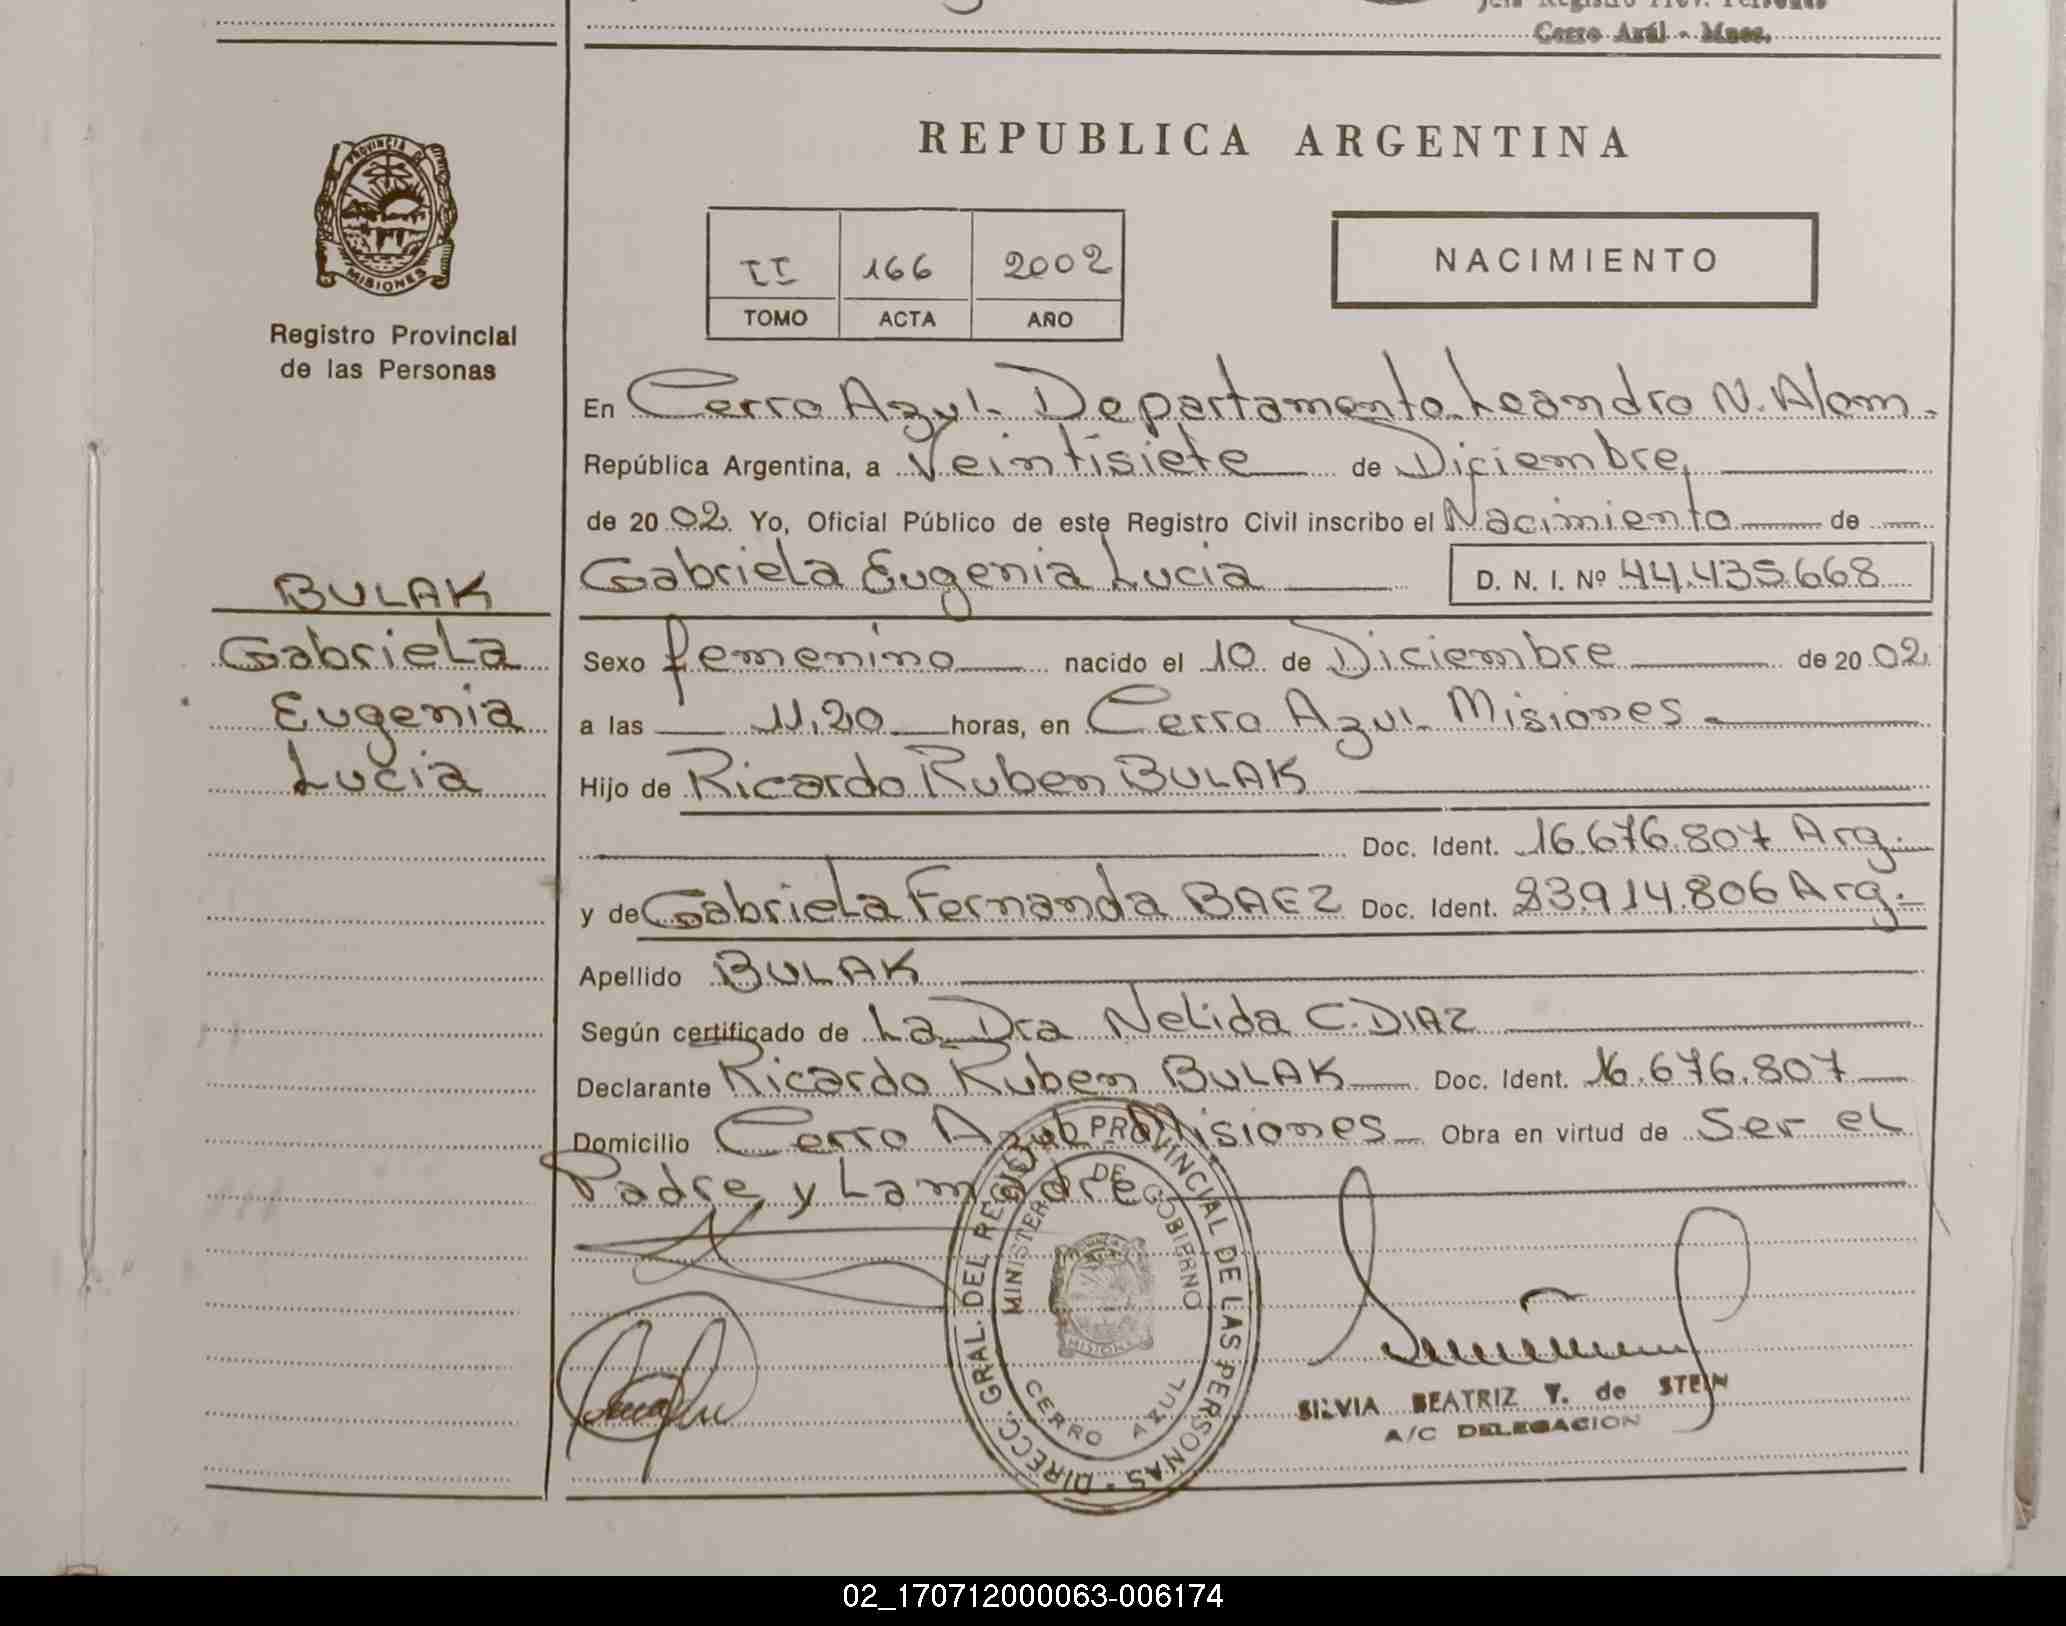 Cerro Azúl - Mnes.
PROVINCIA DE
MISIONES
Registro Provincial
de las Personas
REPUBLICA ARGENTINA
II 166 2002
TOMO ACTA AÑO
NACIMIENTO
En Cerro Azul. Departamento Leandro N. Alem.
República Argentina, a Veintisiete de Diciembre,
de 2002. Yo, Oficial Público de este Registro Civil inscribo el Nacimiento de
Gabriela Eugenia Lucia D. N. I. Nº 44.435.668
BULAK
Gabriela
Eugenia
Lucia
Sexo femenino nacido el 10 de Diciembre de 2002.
a las 11,20 horas, en Cerro Azul. Misiones.
Hijo de Ricardo Ruben BULAK
Doc. Ident. 16.676.807 Arg.
y de Gabriela Fernanda BAEZ Doc. Ident. 23.914.806 Arg.
Apellido BULAK
Según certificado de La Dra Nelida C. DIAZ
Declarante Ricardo Ruben BULAK Doc. Ident. 16.676.807
Domicilio Cerro Azul Misiones Obra en virtud de Ser el
Padre y La madre
DIRECC. GRAL. DEL REGISTRO PROVINCIAL DE LAS PERSONAS -
MINISTERIO DE GOBIERNO
MISIONES
CERRO AZUL
SILVIA BEATRIZ Y. de STEIN
A/C DELEGACION
02_170712000063-006174